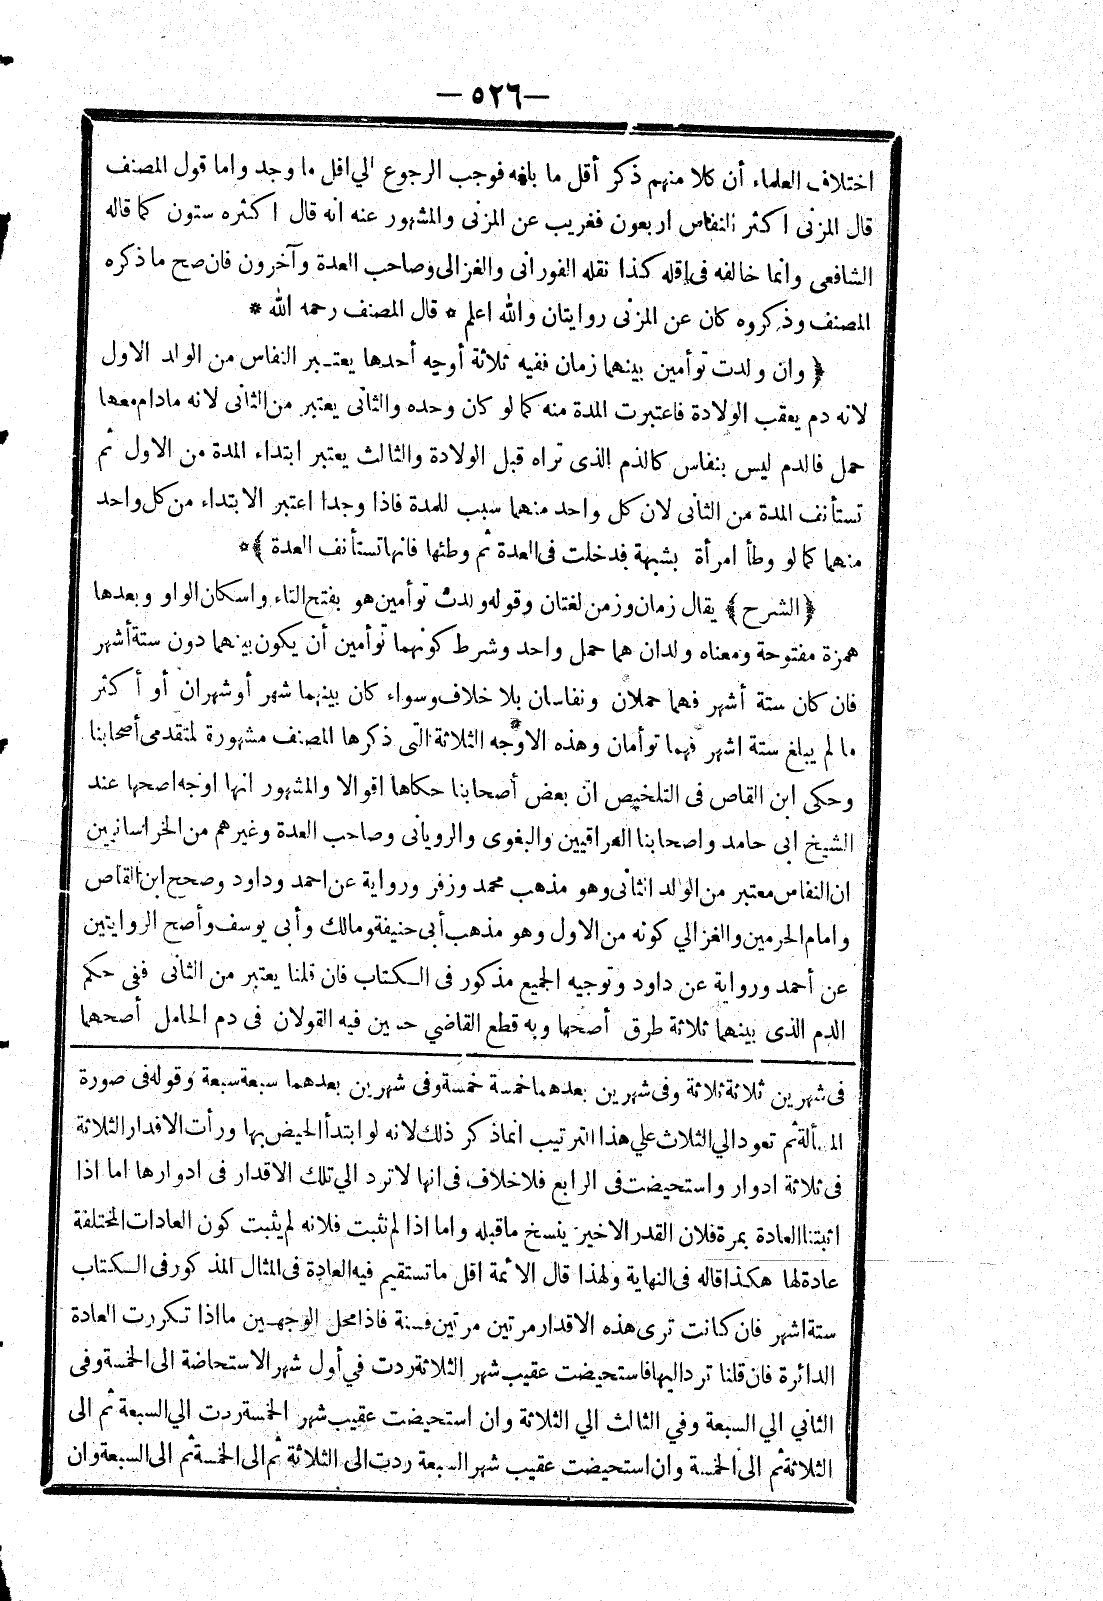 —٥٢٦—
اختلاف العلماء أن كلا منهم ذكر أقل ما بلغه فوجب الرجوع الي اقل ما وجد واما قول المصنف
قال المزنى اكثر النفاس اربعون فغريب عن المزنى والمشهور عنه انه قال اكثره ستون كما قاله
الشافعى وانما خالفه فى اقله كذا نقله الفورانى والغزالى وصاحب العدة وآخرون فان صح ما ذكره
المصنف وذكروه كان عن المزنى روايتان والله اعلم * قال المصنف رحمه الله *
﴿ وان ولدت توأمين بينهما زمان ففيه ثلاثة أوجه أحدها يعتبر النفاس من الولد الاول
لانه دم يعقب الولادة فاعتبرت المدة منه كما لو كان وحده والثانى يعتبر من الثانى لانه مادام معها
حمل فالدم ليس بنفاس كالدم الذى تراه قبل الولادة والثالث يعتبر ابتداء المدة من الاول ثم
تستأنف المدة من الثانى لان كل واحد منهما سبب للمدة فاذا وجدا اعتبر الابتداء من كل واحد
منهما كما لو وطأ امرأة بشبهة فدخلت فى العدة ثم وطئها فانها تستأنف العدة ﴾*
﴿الشرح﴾ يقال زمان وزمن لغتان وقوله ولدت توأمين هو بفتح التاء واسكان الواو وبعدها
همزة مفتوحة ومعناه ولدان هما حمل واحد وشرط كونهما توأمين أن يكون بينهما دون ستة أشهر
فان كان ستة أشهر فهما حملان ونفاسان بلا خلاف وسواء كان بينهما شهر أو شهران أو أكثر
ما لم يبلغ ستة اشهر فهما توأمان وهذه الاوجه الثلاثة التى ذكرها المصنف مشهورة لمتقدمى أصحابنا
وحكى ابن القاص فى التلخيص ان بعض أصحابنا حكاها اقوالا والمشهور انها اوجه اصحها عند
الشيخ ابى حامد واصحابنا العراقيين والبغوى والرويانى وصاحب العدة وغيرهم من الخراسانيين
ان النفاس معتبر من الولد الثانى وهو مذهب محمد وزفر ورواية عن احمد وداود وصحح ابن القاص
وامام الحرمين والغزالي كونه من الاول وهو مذهب أبى حنيفة ومالك وأبى يوسف وأصح الروايتين
عن أحمد ورواية عن داود وتوجيه الجميع مذكور فى الكتاب فان قلنا يعتبر من الثانى ففى حكم
الدم الذى بينهما ثلاثة طرق أصحها وبه قطع القاضي حسين فيه القولان فى دم الحامل أصحهما
فى شهرين ثلاثة ثلاثة وفى شهرين بعدهما خمسة خمسة وفى شهرين بعدهما سبعة سبعة وقوله فى صورة
المسألة ثم تعود الي الثلاث علي هذا الترتيب انما ذكر ذلك لانه لو ابتدأ الحيض بها ورأت الاقدار الثلاثة
فى ثلاثة ادوار واستحيضت فى الرابع فلا خلاف فى انها لا ترد الي تلك الاقدار فى ادوارها اما اذا
اثبتنا العادة بمرة فلان القدر الاخير ينسخ ما قبله واما اذا لم نثبت فلانه لم يثبت كون العادات المختلفة
عادة لها هكذا قاله فى النهاية ولهذا قال الائمة اقل ما تستقيم فيه العادة فى المثال المذكور فى الكتاب
ستة اشهر فان كانت ترى هذه الاقدار مرتين مرتين فسنة فاذا محل الوجهين ما اذا تكررت العادة
الدائرة فان قلنا ترد اليها فاستحيضت عقيب شهر الثلاثة ردت في أول شهر الاستحاضة الى الخمسة وفى
الثاني الي السبعة وفي الثالث الي الثلاثة وان استحيضت عقيب شهر الخمسة ردت الي السبعة ثم الى
الثلاثة ثم الى الخمسة وان استحيضت عقيب شهر السبعة ردت الى الثلاثة ثم الى الخمسة ثم الى السبعة وان